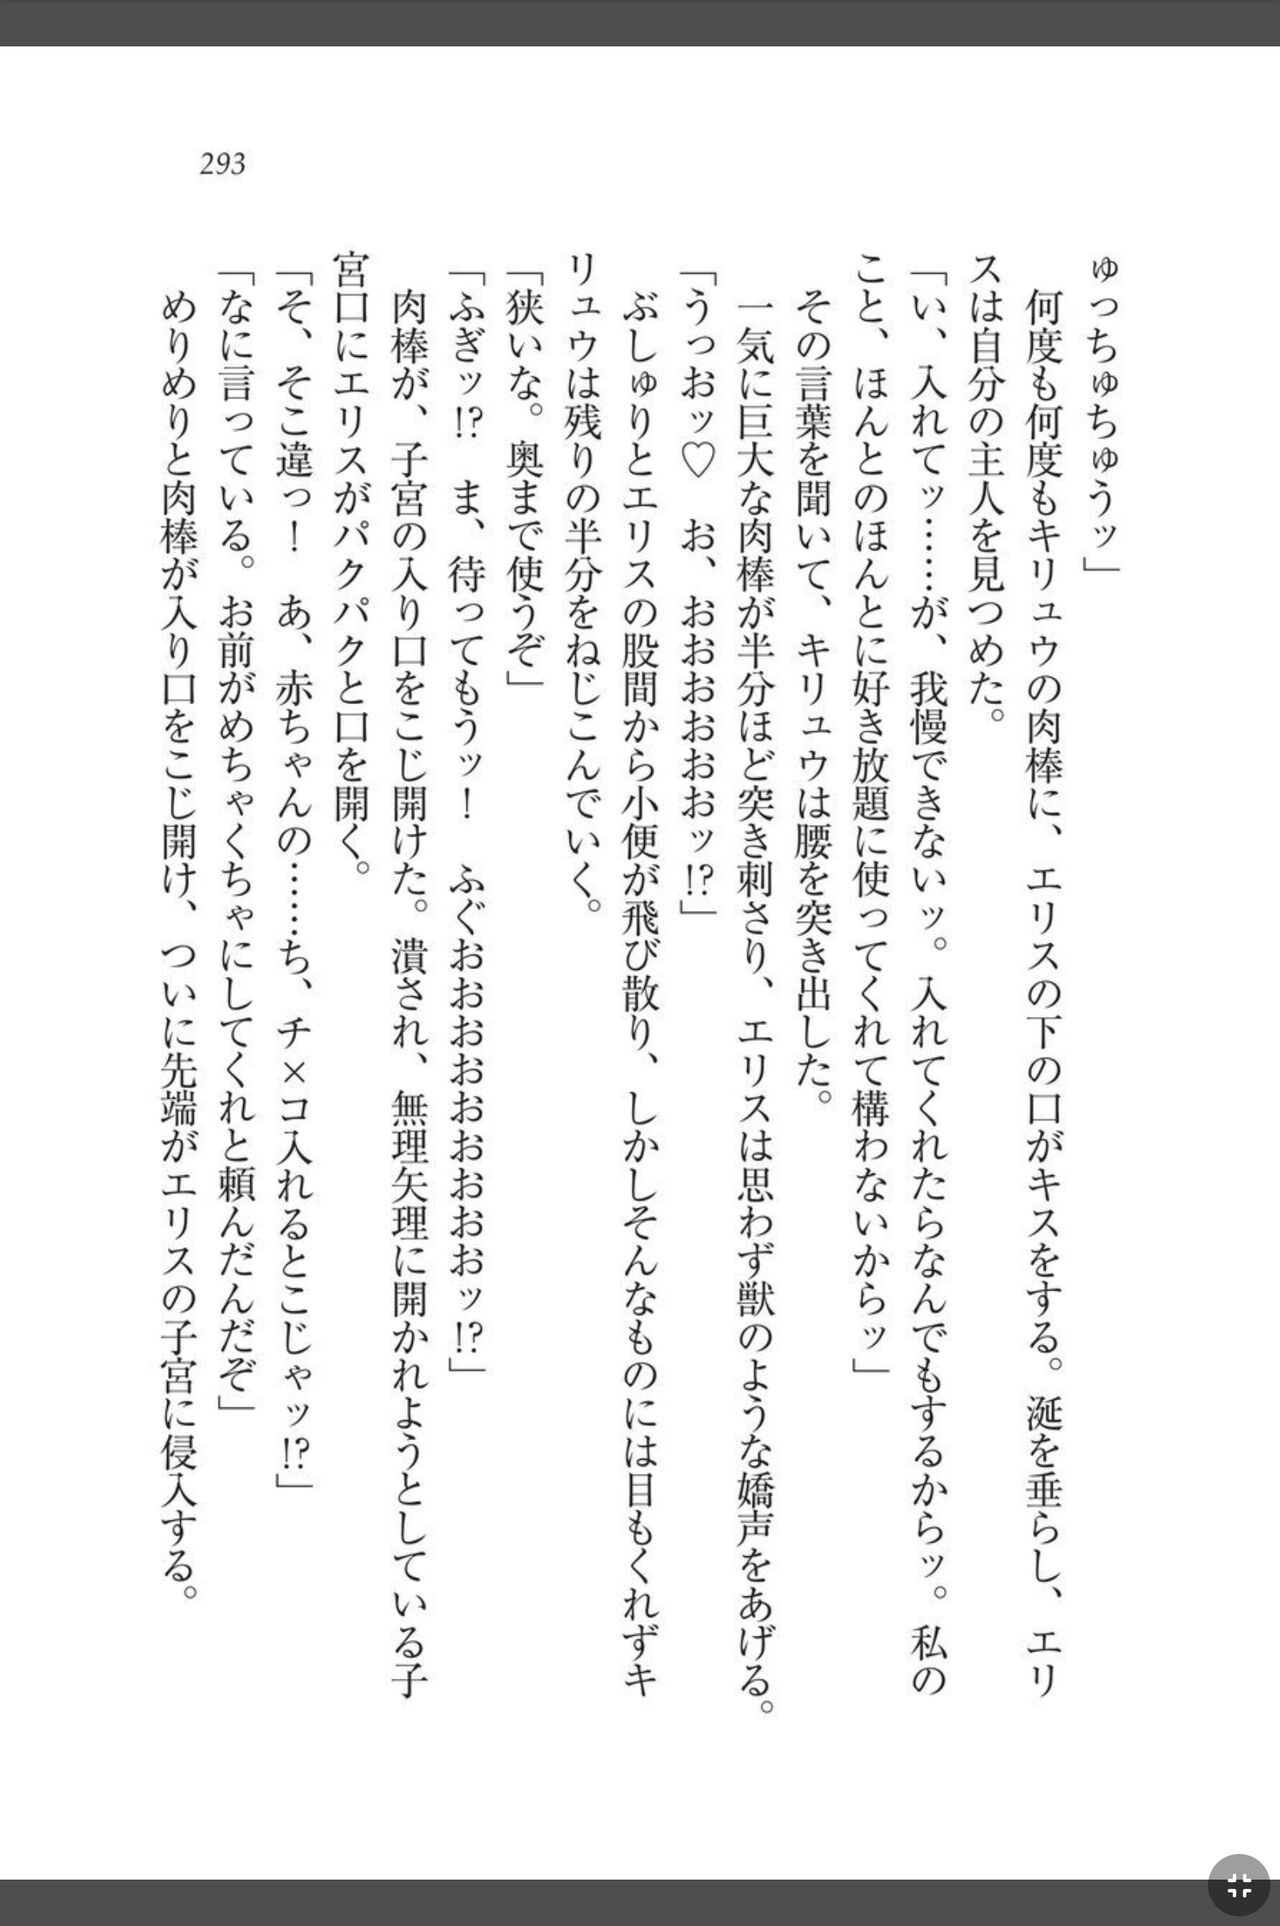 293
ゅっちゅちゅうッ」
何度も何度もキリュウの肉棒に、エリスの下の口がキスをする。涎を垂らし、エリ
スは自分の主人を見つめた。
「い、入れてッ……が、我慢できないッ。入れてくれたらなんでもするからッ。私の
こと、ほんとのほんとに好き放題に使ってくれて構わないからッ」
その言葉を聞いて、キリュウは腰を突き出した。
一気に巨大な肉棒が半分ほど突き刺さり、エリスは思わず獣のような嬌声をあげる。
「うっおッ♡　お、おおおおおおッ!?」
ぶしゅりとエリスの股間から小便が飛び散り、しかしそんなものには目もくれずキ
リュウは残りの半分をねじこんでいく。
「狭いな。奥まで使うぞ」
「ふぎッ!?　ま、待ってもうッ！　ふぐおおおおおおおおおッ!?」
肉棒が、子宮の入り口をこじ開けた。潰され、無理矢理に開かれようとしている子
宮口にエリスがパクパクと口を開く。
「そ、そこ違っ！　あ、赤ちゃんの……ち、チ×コ入れるとこじゃッ!?」
「なに言っている。お前がめちゃくちゃにしてくれと頼んだんだぞ」
めりめりと肉棒が入り口をこじ開け、ついに先端がエリスの子宮に侵入する。